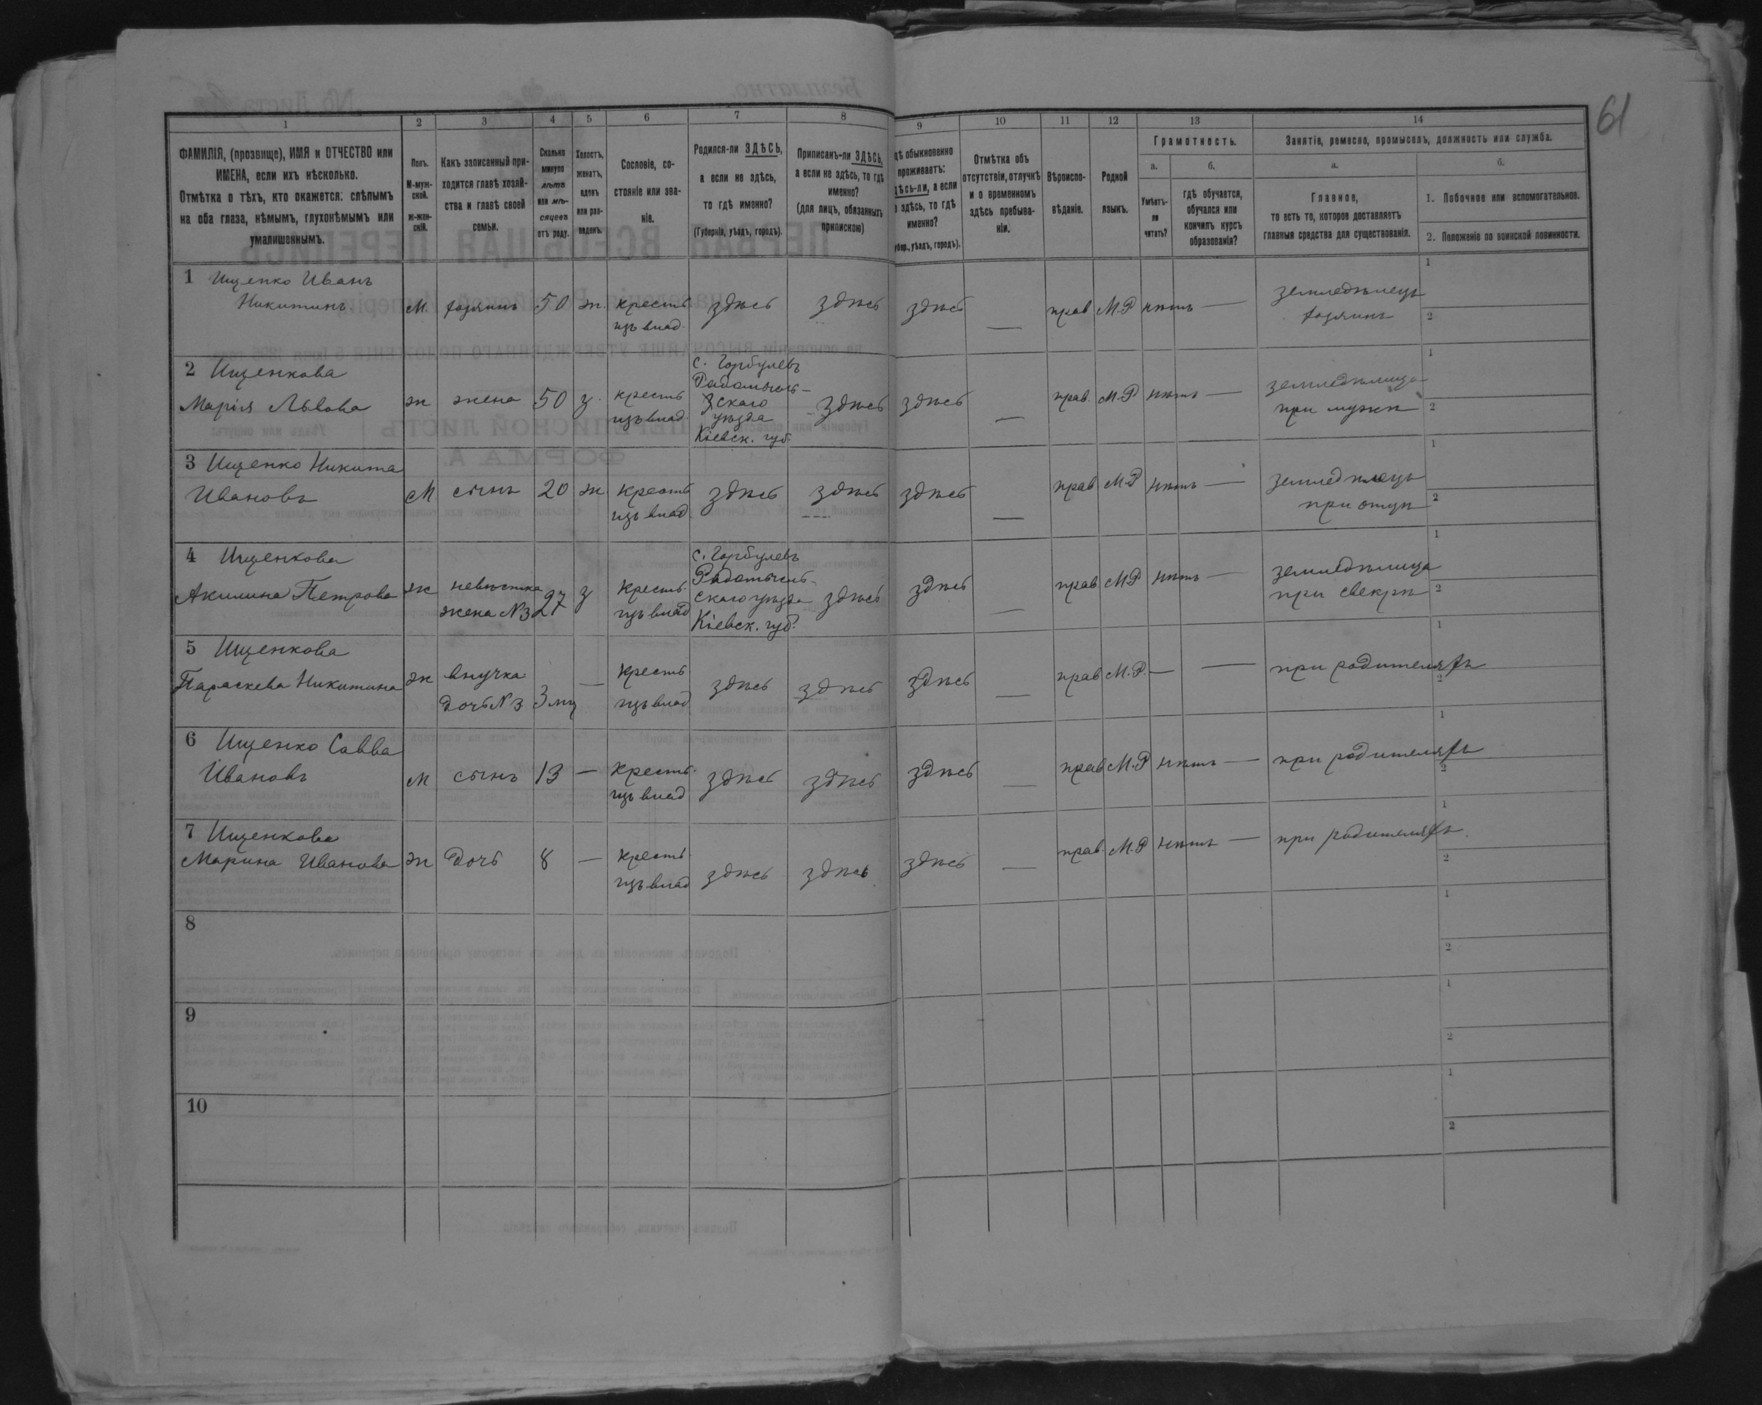 61
1 2 3 4 5 6 7 8 9 10 11 12 13 14
ФАМИЛІЯ, (прозвище), ИМЯ и ОТЧЕСТВО или
ИМЕНА, если ихъ нѣсколько.
Отмѣтка о тѣхъ, кто окажется: слѣпымъ
на оба глаза, нѣмымъ, глухонѣмымъ или
умалишеннымъ.
Полъ.
М-муж-
ской.
Ж-жен-
скій.
Какъ записанный при-
ходится главѣ хозяй-
ства и главѣ своей
семьи.
Сколько
минуло
лѣтъ
или мѣ-
сяцевъ
отъ роду.
Холостъ,
женатъ,
вдовъ
или раз-
веденъ.
Сословіе, со-
стояніе или зва-
ніе.
Родился-ли ЗДѢСЬ,
а если не здѣсь,
то гдѣ именно?
(Губернія, уѣздъ, городъ).
Приписанъ-ли ЗДѢСЬ,
а если не здѣсь, то гдѣ
именно?
(для лицъ, обязанныхъ
припискою)
дѣ обыкновенно
проживаетъ:
дѣсь-ли, а если
здѣсь, то гдѣ
именно?
убер., уѣздъ, городъ).
Отмѣтка объ
отсутствіи, отлучкѣ
и о временномъ
здѣсь пребыва-
ніи.
Вѣроиспо-
вѣданіе.
Родной
языкъ.
Грамотность.
а. б.
Умѣетъ-
ли
читать?
Гдѣ обучается,
обучался или
кончилъ курсъ
образованія?
Занятіе, ремесло, промыселъ, должность или служба.
а. б.
Главное,
то есть то, которое доставляетъ
главныя средства для существованія.
1. Побочное или вспомогательное.
2. Положеніе по воинской повинности.
1 Ищенко Иванъ
Никитинъ М хозяинъ 50 ж кресть здѣсь здѣсь здѣсь — прав М.Р нѣтъ — земледѣлецъ
изъ влад. хозяинъ
1
2
2 Ищенкова с. Горбулевъ
Марія Львова ж жена 50 з. кресть Радомысль- здѣсь здѣсь — прав. М.Р нѣтъ — земледѣлица
изъ влад. скаго при мужѣ
уѣзда
Кіевск. губ.
1
2
3 Ищенко Никита
Ивановъ М сынъ 20 ж кресть здѣсь здѣсь здѣсь — прав М.Р нѣтъ — земледѣлецъ
изъ влад. при отцѣ
1
2
4 Ищенкова с. Горбулевъ
Акилина Петрова ж невѣстка 27 з кресть Радомысль- здѣсь здѣсь — прав М.Р нѣтъ — земледѣлица
жена №3 изъ влад скаго уѣзда при свекрѣ
Кіевск. губ.
1
2
5 Ищенкова
Параскева Никитина ж внучка 3 мц — кресть здѣсь здѣсь здѣсь — прав М.Р. — — при родителяхъ
дочь №3 изъ влад
1
2
6 Ищенко Савва
Ивановъ М сынъ 13 — кресть здѣсь здѣсь здѣсь — прав М.Р нѣтъ — при родителяхъ
изъ влад
1
2
7 Ищенкова
Марина Иванова ж дочь 8 — кресть здѣсь здѣсь здѣсь — прав М.Р нѣтъ — при родителяхъ
изъ влад
1
2
8
1
2
9
1
2
10
1
2